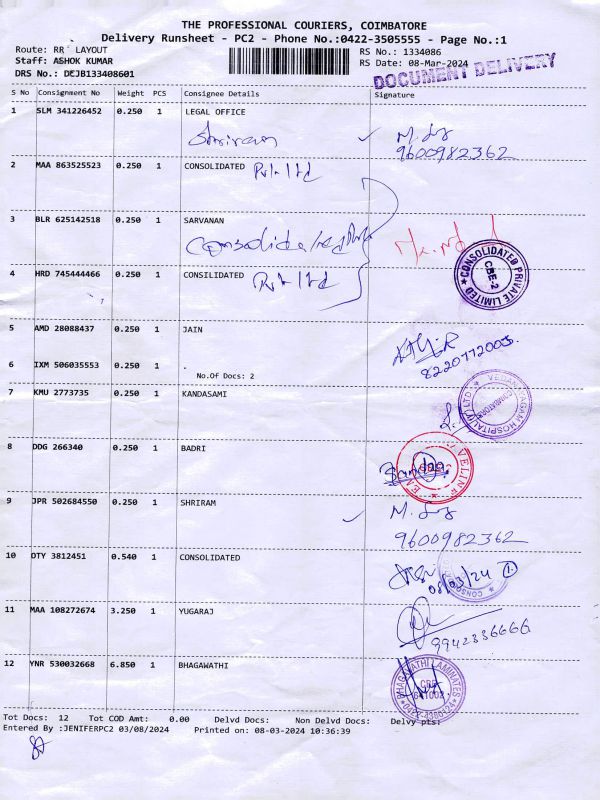 THE PROFESSIONAL COURIERS, COIMBATORE
Delivery Runsheet - PC2 - Phone No.:0422-3505555 - Page No.:1
Route: RR LAYOUT
RS No.: 1334086
Staff: ASHOK KUMAR
RS Date: 08-Mar-2024
DRS No.: DEJB133408601
DOCUMENT DELIVERY
S No Consignment No Weight PCS Consignee Details Signature
1 SLM 341226452 0.250 1 LEGAL OFFICE
Shriram
9600982362
2 MAA 863525523 0.250 1 CONSOLIDATED Pvt ltd
3 BLR 625142518 0.250 1 SARVANAN
CONSOLIDATED PRIVATE LIMITED
CBE-2
4 HRD 745444466 0.250 1 CONSILIDATED Pvt ltd
5 AMD 28088437 0.250 1 JAIN
8220772003
6 IXM 506035553 0.250 1 .
No.Of Docs: 2
7 KMU 2773735 0.250 1 KANDASAMI
8 DDG 266340 0.250 1 BADRI
9 JPR 502684550 0.250 1 SHRIRAM
9600982362
10 OTY 3812451 0.540 1 CONSOLIDATED
08/03/24
11 MAA 108272674 3.250 1 YUGARAJ
9942336666
12 YNR 530032668 6.850 1 BHAGAWATHI
BHAGAWATHI LAMINATES
Tot Docs: 12 Tot COD Amt: 0.00 Delvd Docs: Non Delvd Docs: Delvy pts:
Entered By :JENIFERPC2 03/08/2024 Printed on: 08-03-2024 10:36:39